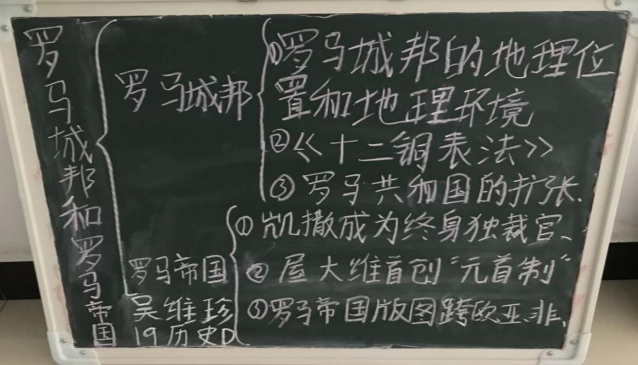 罗马城邦和罗马帝国
罗马城邦
①罗马城邦的地理位
置和地理环境
②《十二铜表法》
③罗马共和国的扩张.
罗马帝国
①凯撒成为终身独裁官、
②屋大维首创“元首制”
③罗马帝国版图跨欧亚非、
吴维珍
19历史D